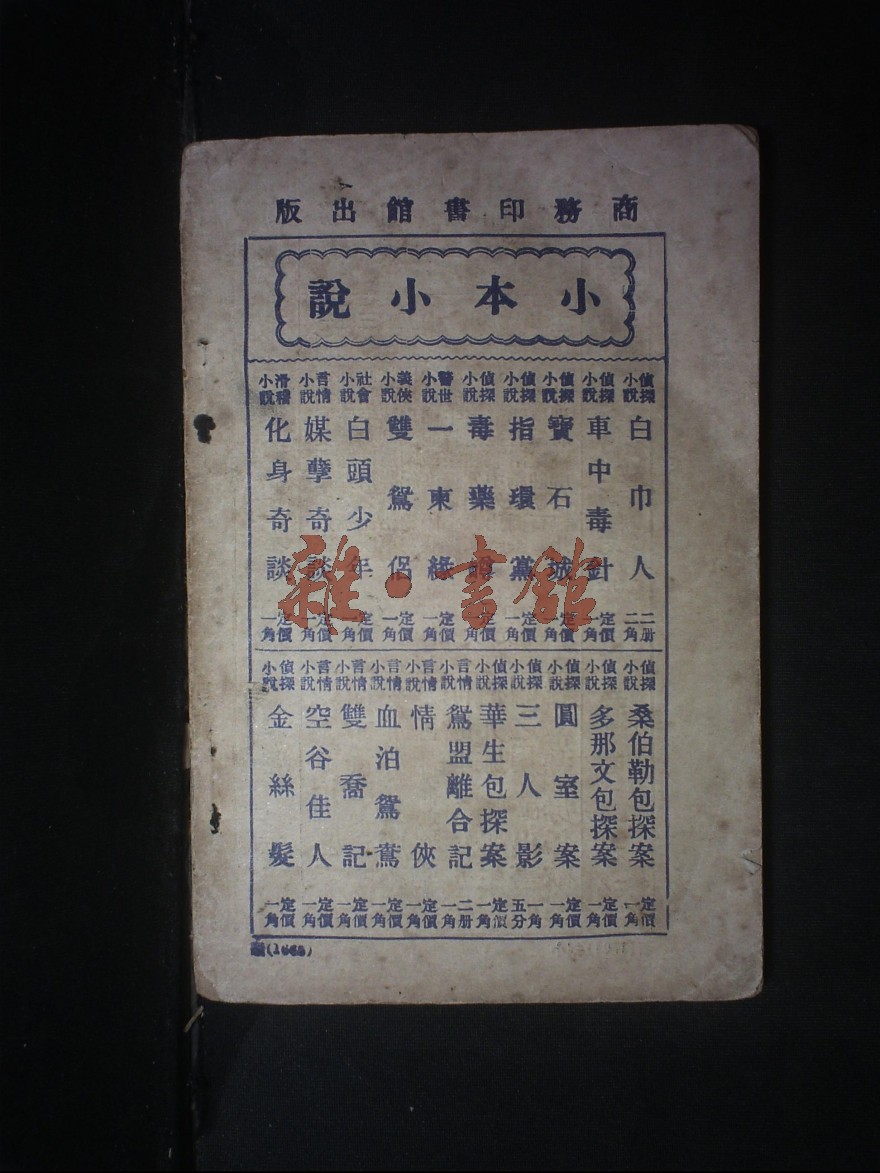 商務印書館出版
小本小說
偵探小說 白巾人 二册二角
偵探小說 車中毒針 定價一角
偵探小說 寶石城 定價一角
偵探小說 指環黨 定價一角
偵探小說 毒藥罇 定價一角
警世小說 一柬緣 定價一角
義俠小說 雙鴛侶 定價一角
社會小說 白頭少年 定價一角
言情小說 媒孽奇談 定價一角
滑稽小說 化身奇談 定價一角
偵探小說 桑伯勒包探案 定價一角
偵探小說 多那文包探案 定價一角
偵探小說 圓室案 定價一角
偵探小說 三人影 一角五分
偵探小說 華生包探案 定價一角
言情小說 鴛盟離合記 二册二角
言情小說 情俠 定價一角
言情小說 血泊鴛鴦 定價一角
言情小說 雙喬記 定價一角
言情小說 空谷佳人 定價一角
偵探小說 金絲髮 定價一角
雜·書館